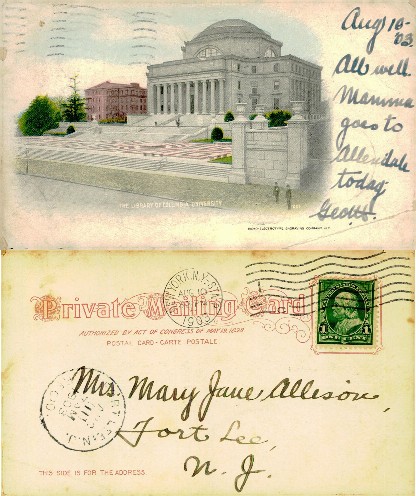 Aug 10-
'03
All well.
Mamma
goes to
Allendale
today.
THE LIBRARY OF COLUMBIA UNIVERSITY
Private Mailing Card
AUTHORIZED BY ACT OF CONGRESS OF MAY 19, 1898
POSTAL CARD-CARTE POSTALE
NEW YORK, N.Y.
1903
1 1
Mrs Mary Jane Allison,
Fort Lee,
N. J.
THIS SIDE IS FOR THE ADDRESS.